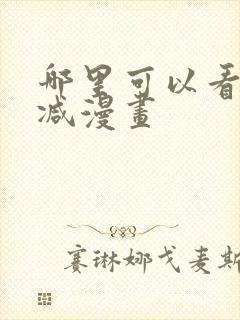 哪里可以看
减漫畫
赛琳娜戈麦斯